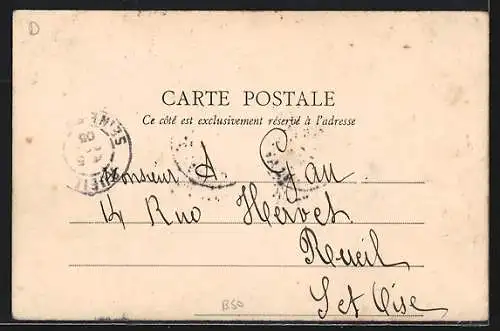 D
CARTE POSTALE
Ce côté est exclusivement réservé à l'adresse
RUEIL SEINE
05
Monsieur A Cyan
14 Rue Hervet
Rueil
S et Oise
B50